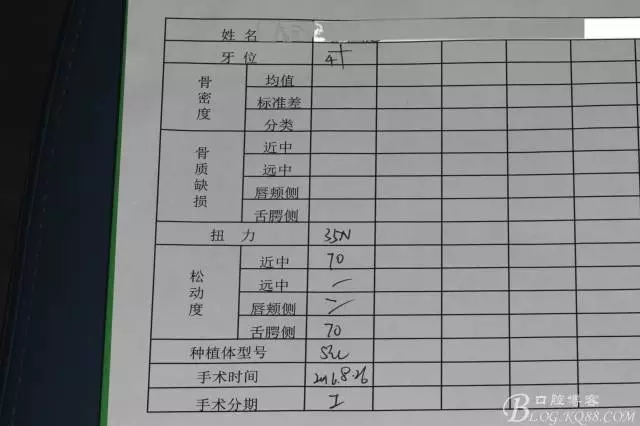 姓 名
牙 位 4+
骨密度 均值
标准差
分类
骨质缺损 近中
远中
唇颊侧
舌腭侧
扭 力 35N
松动度 近中 70
远中 —
唇颊侧 —
舌腭侧 70
种植体型号
手术时间 2016.8.26
手术分期 I
口腔博客
BLOG.KQ88.COM